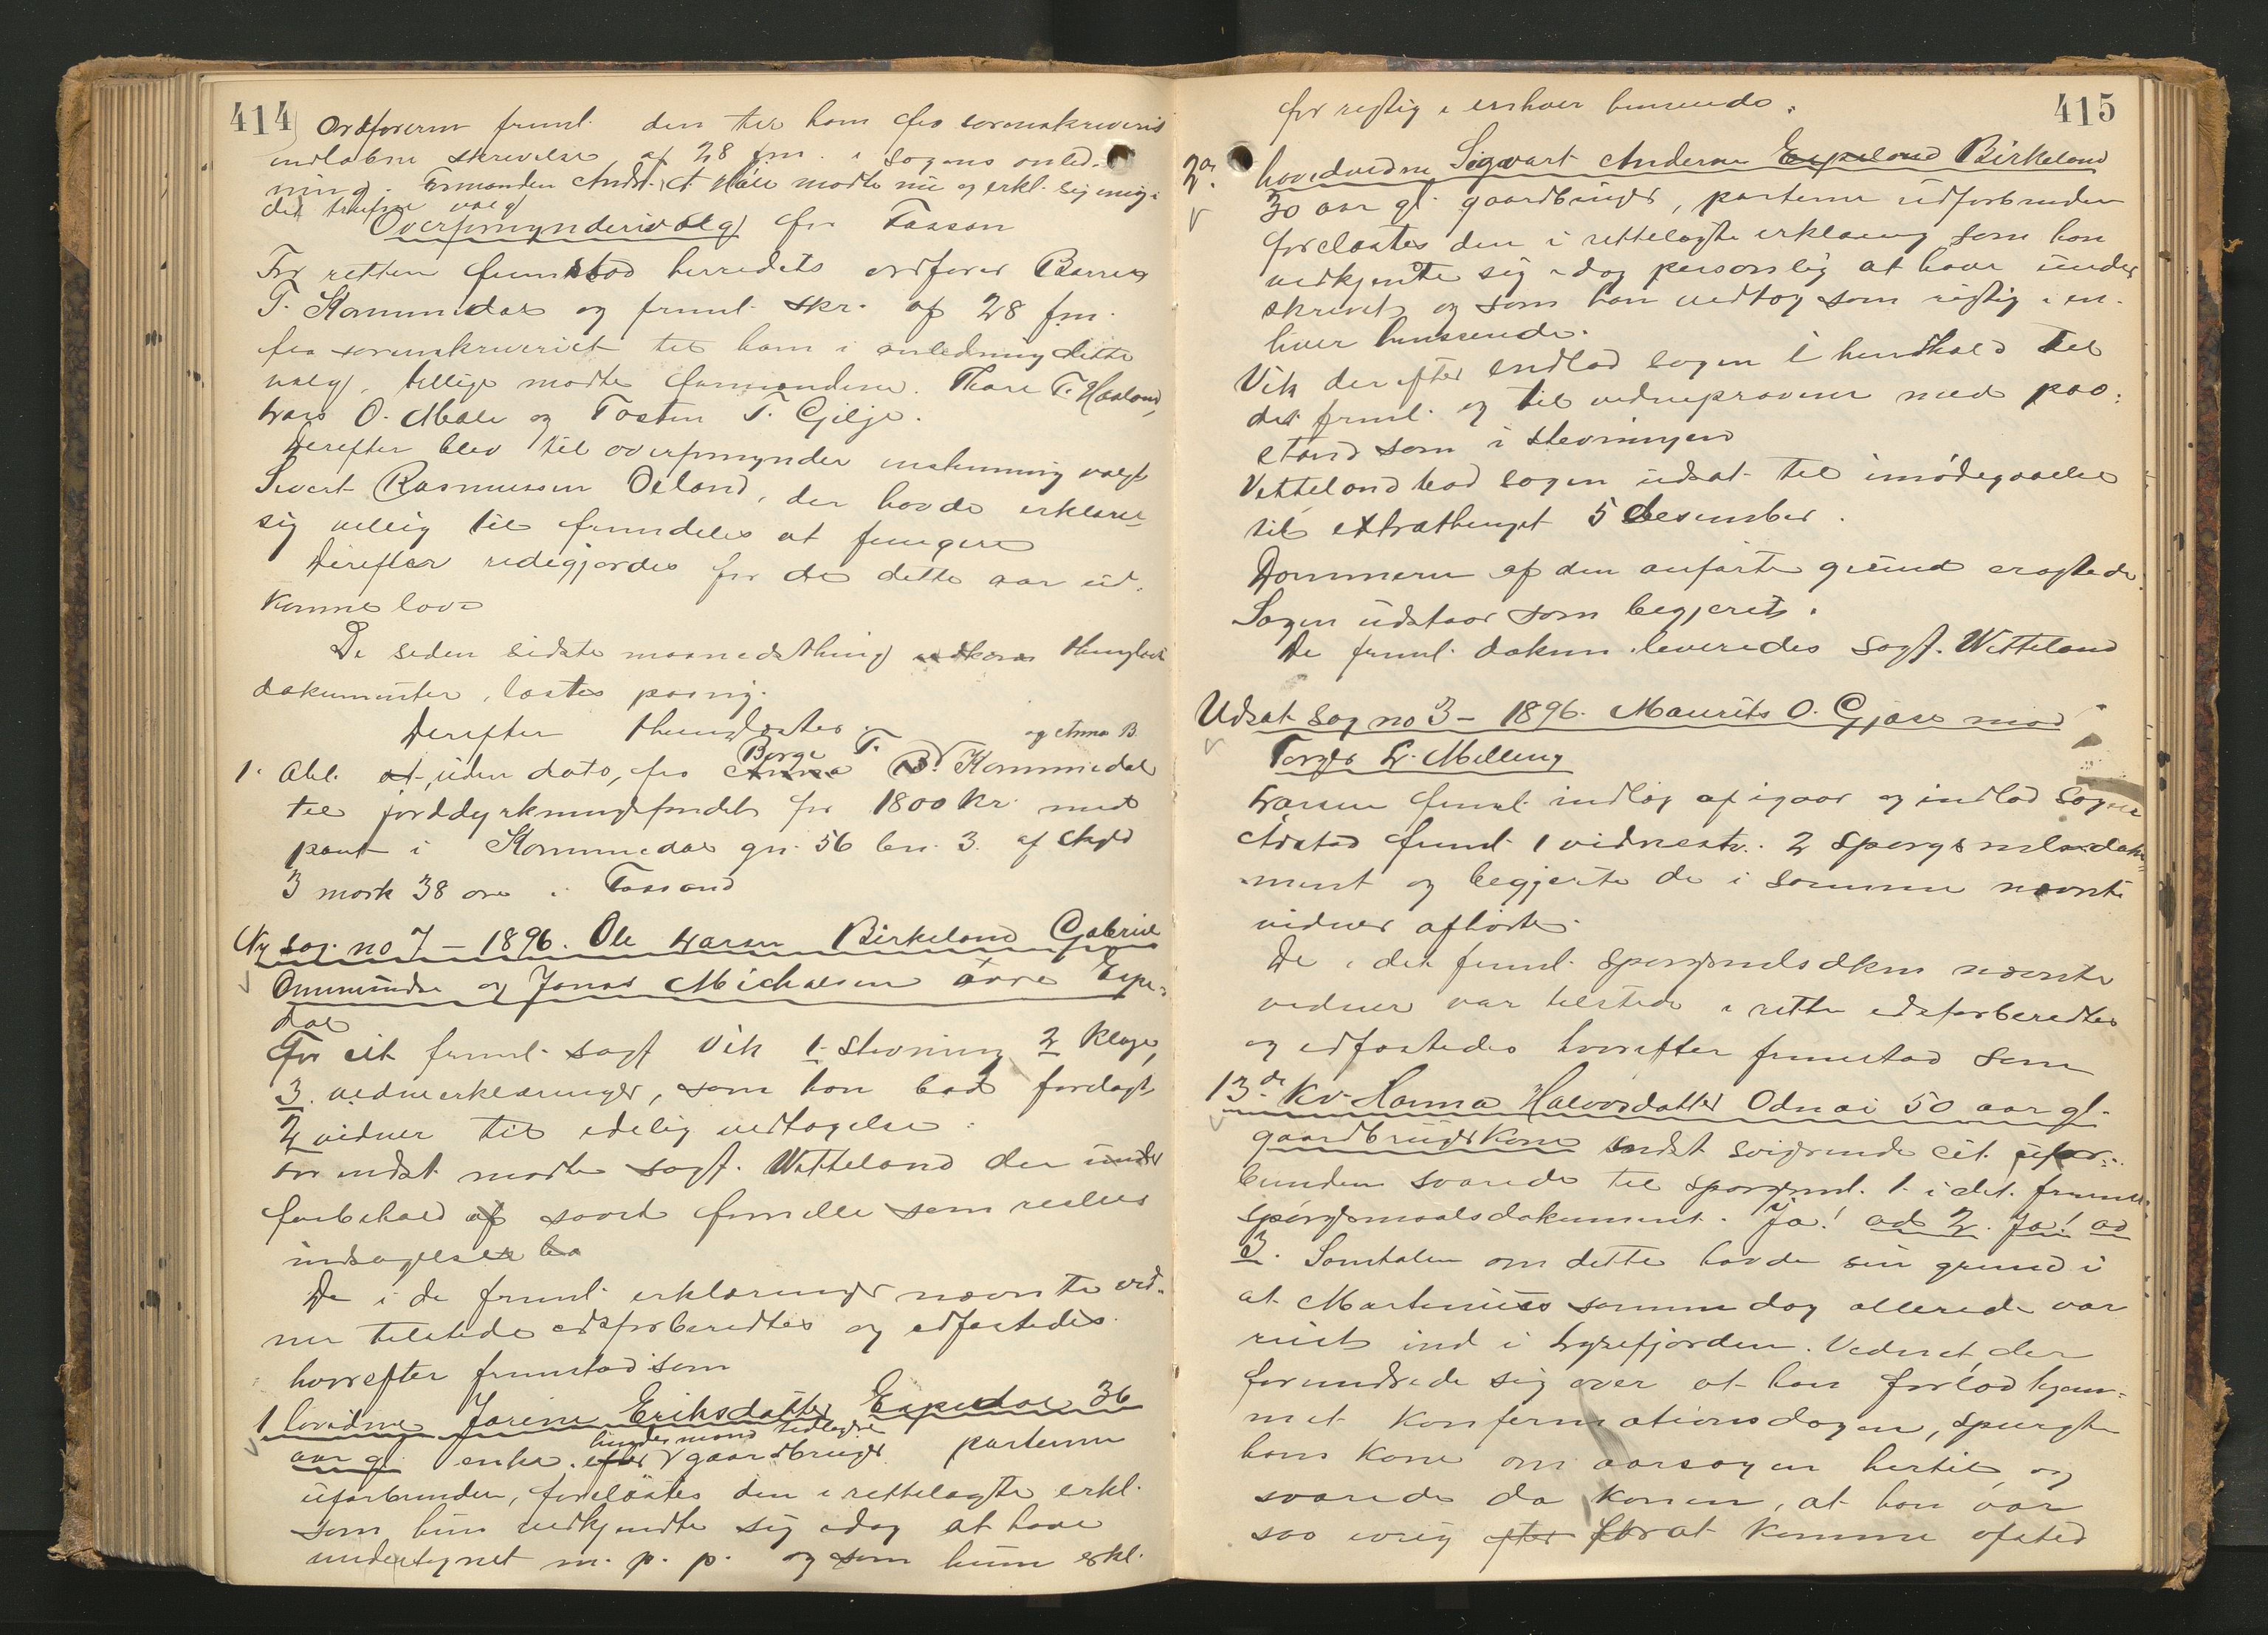 414
Ordføreren freml. den til ham fra sorenskriveriet
indløbne skrivelse af 28 f.m. i sagens anled-
ning. Formanden Andr. A. mødte nu og erkl. sig enig i
det trufne valg
Overformyndervalg for Fossan
For retten fremstod herredets ordfører Børre
T. Kommedal og freml. skr. af 28 f.m.
fra sorenskriveriet til ham i anledning dette
valg, tillige mødte formændene Thore T. Haaland,
Lars O. Mæle og Tosten T. Gilje.
Derefter blev til overformynder enstemmig valgt
Sivert Rasmussen Oeland, der havde erklæret
sig villig til fremdeles at fungere
Derefter redegjordes for de dette aar ud-
komne love
De siden sidste maanedsthing thinglæste
dokumenter, læstes paany.
Derefter thinglæstes
og Anna B.
Børge T.
1. Obl. uden dato, fra B. Kommedal
til jorddyrkningsfondet for 1800 kr. med
pant i Kommedal gn. 56 bn. 3 af skyld
3 mark 38 øre i Fossand
Ny sag no 7 – 1896. Ole Larsen Birkeland Gabriel
Ommundsen og Jonas Michaelsen øvre Espe-
dal
For cit. freml. sagf. Vik 1 Stevning 2 klage,
3. vidneerklæringer, som han bad forelagt
2 vidner til edelig vedtagelse.
For indst. mødte sagf. Vetteland der under
forbehold af saavel formelle som reelle
indsigelser
De i de freml. erklæringer nævnte vid-
ner tilstede edsforberedtes og edfæstedes
hvorefter fremstod som
1 hovidne Jorine Eriksdatter Espedal 36
aar gl. enke efter gaardbruger parterne
uforbunden, forelæstes den i rettelagte erkl.
som hun vedkjendte sig idag at have
undertegnet m. p. p. og som hun erkl.
415
for rigtig i enhver henseende.
2. hovedvidne Sigvart Andersen Espeland Birkeland
30 aar gl. gaardbruger, parterne uforbunden
forelæstes den i rettelagte erklæring som han
vedkjendte sig idag personlig at have under
skrevet og som han vedtog som rigtig i en-
hver henseende.
Vik derefter indlod sagen i henhold til
det freml. og til vidneprøven med paa-
stand som i stevningen
Vetteland bad sagen udsat til imødegaaelse
til extrathinget 5 desember.
Dommeren af den anførte grund eragtede
Sagen udstaar som begjeret.
De freml. dokum. leveredes sagf. Vetteland
Udsat sag no 3 – 1896. Maurits O. Gjøse mod
Torger L. Melling
Larsen freml. indlæg af igaar og indlod sagen
Aarstad freml. 1 vidnestv. 2 spørgsmlsdoku-
ment og begjerte de i samme nævnte
vidner afhørte.
De i det freml. spørgsmlsdkm nævnte
vidner var tilstede i retten edsforberedtes
og edfæstedes hvorefter fremstod som
13de Kv. Hanna Halvorsdatter Odnøi 50 aar gl.
gaardbrugerkone indst. svigerinde cit. ufor-
bunden svarede til spørgsml. 1 i det fremlt.
spørgsmaalsdokument. Ja! ad 2. Ja! ad
3. Samtalen om dette havde sin grund i
at Martinius samme dag allerede var
reist ind i Lysefjorden. Vidnet, der
forundrede sig over at han forlod hjem-
met konfirmationsdagen, spurgte
hans kone om aarsagen hertil og
svarede da konen, at han var
saa ivrig efter for at komme afsted